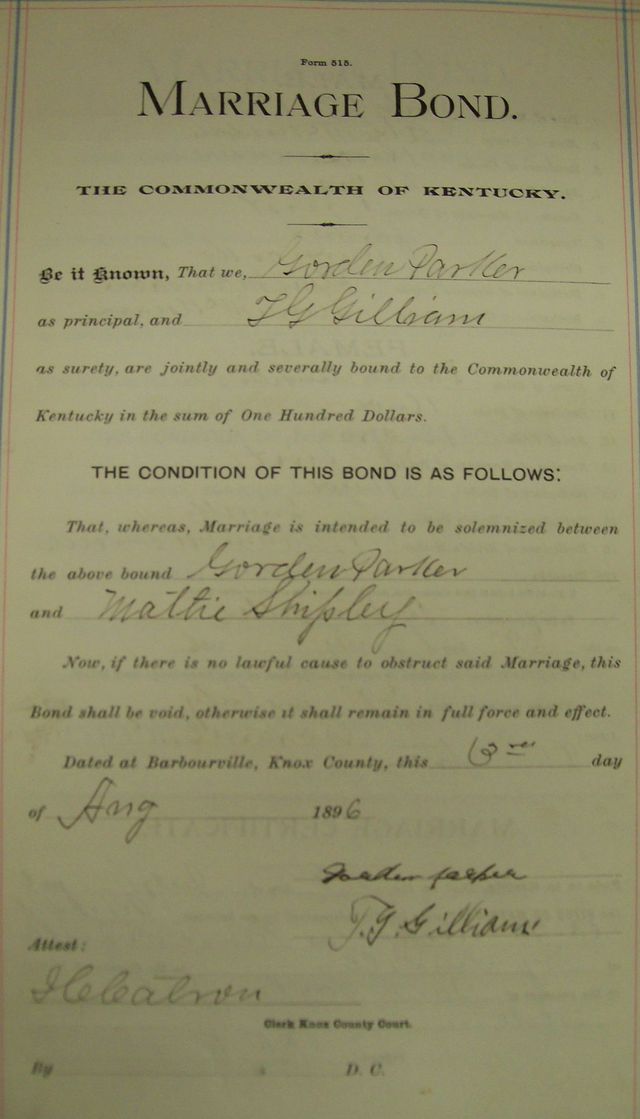 Form 515.
MARRIAGE BOND.
THE COMMONWEALTH OF KENTUCKY.
Be it Known, That we, Gorden Parker
as principal, and T G Gilliam
as surety, are jointly and severally bound to the Commonwealth of
Kentucky in the sum of One Hundred Dollars.
THE CONDITION OF THIS BOND IS AS FOLLOWS:
That, whereas, Marriage is intended to be solemnized between
the above bound Gorden Parker
and Mattie Shipley
Now, if there is no lawful cause to obstruct said Marriage, this
Bond shall be void, otherwise it shall remain in full force and effect.
Dated at Barbourville, Knox County, this day
of Aug 1896
T. G. Gilliam
Attest:
Catron
Clerk Knox County Court.
By D. C.